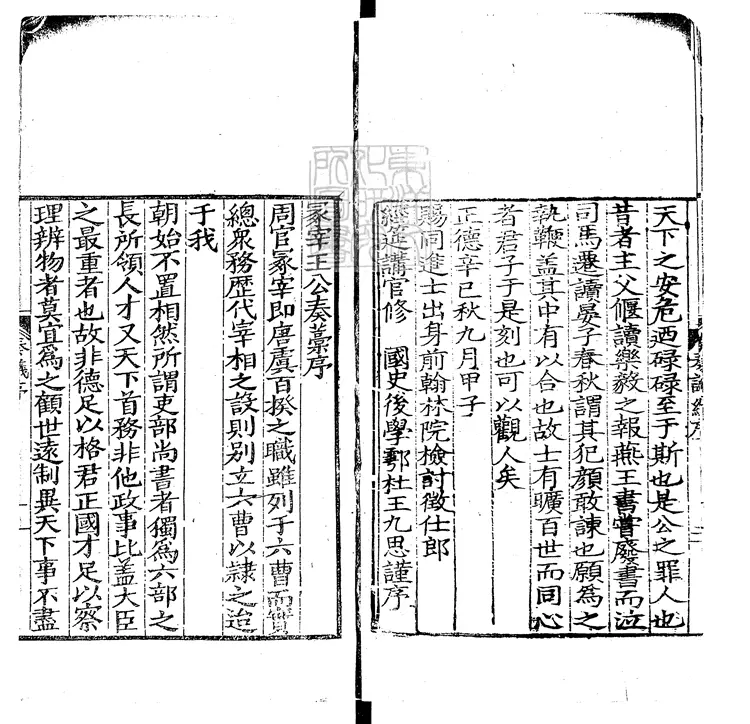 天下之安危迺碌碌至于斯也是公之罪人也
昔者主父偃讀樂毅之報燕王書嘗廢書而泣
司馬遷讀晏子春秋謂其犯顏敢諫也願為之
執鞭盖其中有以合也故士有曠百世而同心
者君子于是刻也可以觀人矣
正德辛巳秋九月甲子
賜同進士出身前翰林院檢討徵仕郎
經筵講官修 國史後學鄠杜王九思謹序
冢宰王公奏藁序
周官冢宰即唐虞百揆之職雖列于六曹而實
總衆務歷代宰相之設則别立六曹以隷之迨
于我
朝始不置相然所謂吏部尚書者獨為六部之
長所領人才又天下首務非他政事比盖大臣
之最重者也故非德足以格君正國才足以察
理辨物者莫宜為之顧世遠制異天下事不盡